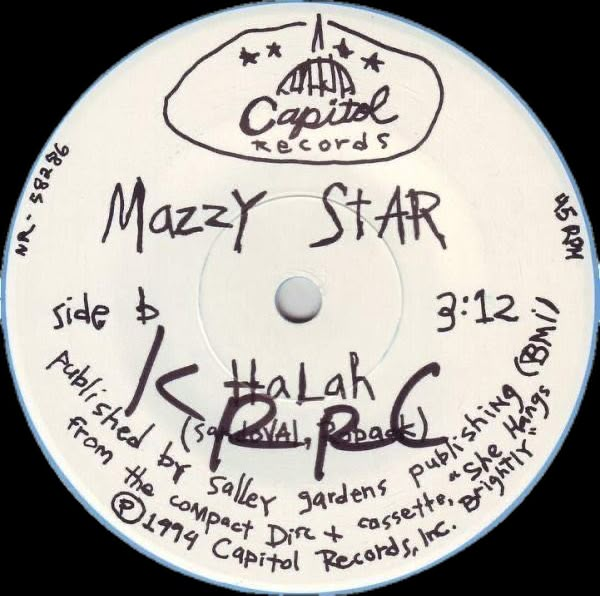 Capitol
Records
NR-58286
45 RPM
Mazzy Star
side b
3:12
Halah
(Sandoval, Roback)
KRRC
published by salley gardens publishing (BMI)
from the compact Disc + cassette, "She Hangs Brightly"
℗ 1994 Capitol Records, Inc.